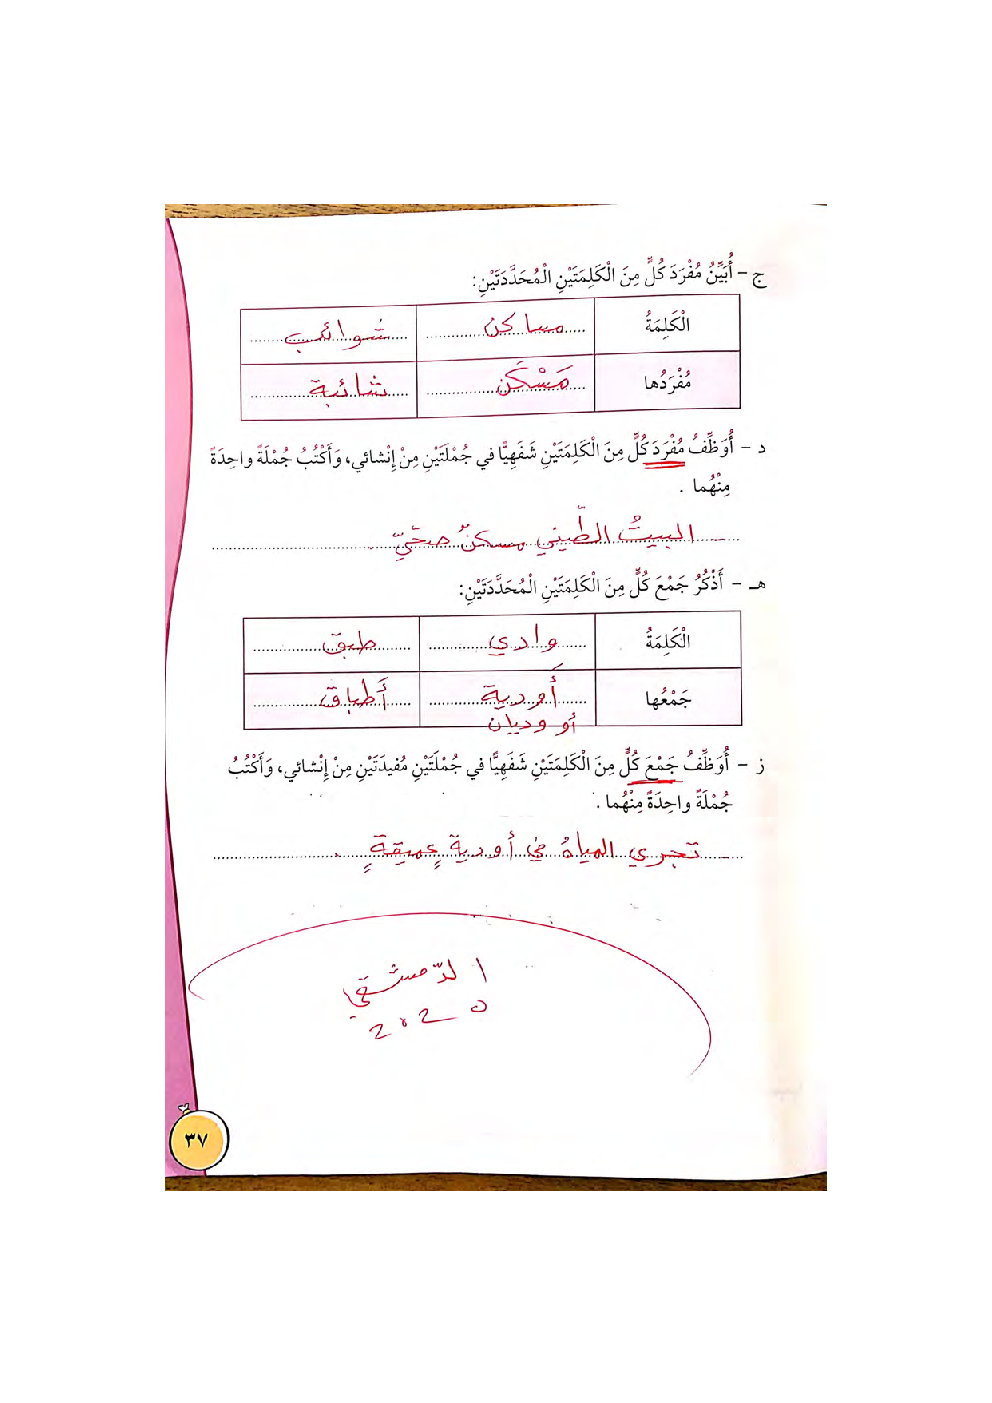 ج - أُبَيِّنُ مُفْرَدَ كُلٍّ مِنَ الْكَلِمَتَيْنِ الْمُحَدَّدَتَيْنِ:
الْكَلِمَةُ مساكن شوائب
مُفْرَدُها مَسْكَن شائبة
د - أُوَظِّفُ مُفْرَدَ كُلٍّ مِنَ الْكَلِمَتَيْنِ شَفَهِيًّا في جُمْلَتَيْنِ مِنْ إِنْشائي، وَأَكْتُبُ جُمْلَةً واحِدَةً
مِنْهُما .
البيتُ الطّيني مسكنٌ صحّيّ .
هـ - أَذْكُرُ جَمْعَ كُلٍّ مِنَ الْكَلِمَتَيْنِ الْمُحَدَّدَتَيْنِ:
الْكَلِمَةُ وادي طبق
جَمْعُها أَودية أَطباق
أو وديان
ز - أُوَظِّفُ جَمْعَ كُلٍّ مِنَ الْكَلِمَتَيْنِ شَفَهِيًّا في جُمْلَتَيْنِ مُفيدَتَيْنِ مِنْ إِنْشائي، وَأَكْتُبُ
جُمْلَةً واحِدَةً مِنْهُما .
تجري المياهُ في أوديةٍ عميقةٍ .
الدّمشقي
2020
٣٧